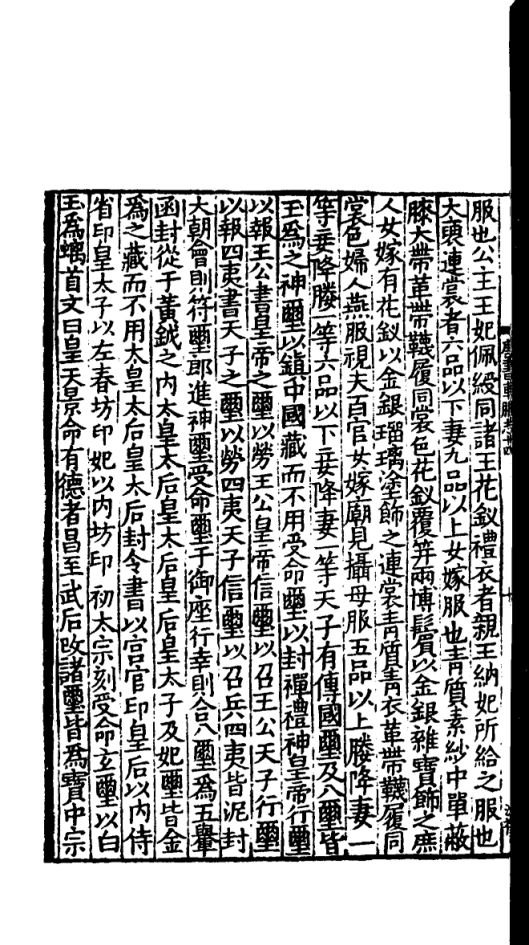 服也公主王妃佩綬同諸王花釵禮衣者親王納妃所給之服也
大袖連裳者六品以下妻九品以上女嫁服也青質素紗中單蔽
膝大帶革帶韈履同裳色花釵覆笄兩博鬢以金銀雜寶飾之庶
人女嫁有花釵以金銀瑠璃塗飾之連裳青質青衣革帶韈履同
裳色婦人燕服視夫百官女嫁廟見攝母服五品以上媵降妻一
等妾降媵一等六品以下妾降妻一等天子有傳國璽及八璽皆
玉爲之神璽以鎮中國藏而不用受命璽以封禪禮神皇帝行璽
以報王公書皇帝之璽以勞王公皇帝信璽以召王公天子行璽
以報四夷書天子之璽以勞四夷天子信璽以召兵四夷皆泥封
大朝會則符璽郎進神璽受命璽于御座行幸則合八璽爲五轝
函封從于黃鉞之内太皇太后皇太后皇后皇太子及妃璽皆金
爲之藏而不用太皇太后皇太后封令書以宫官印皇后以内侍
省印皇太子以左春坊印妃以内坊印 初太宗刻受命玄璽以白
玉爲螭首文曰皇天景命有德者昌至武后改諸璽皆爲寶中宗